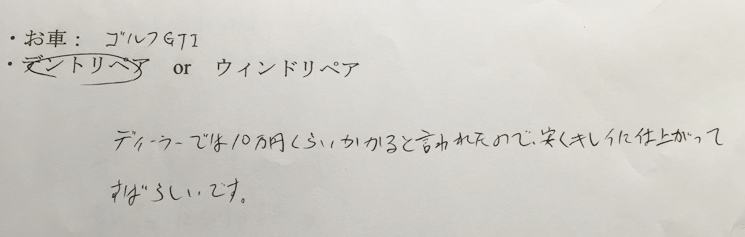 ・お車： ゴルフGTI
・デントリペア or ウィンドリペア
ディーラーでは10万円くらいかかると言われたので、安くキレイに仕上がって
すばらしいです。